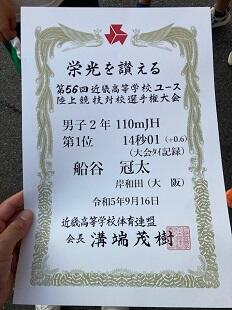 栄光を讃える
第56回近畿高等学校ユース
陸上競技対校選手権大会
男子2年 110mJH
第1位 14秒01 (+0.6)
(大会タイ記録)
船谷 冠太
岸和田(大 阪)
令和5年9月16日
近畿高等学校体育連盟
会長 溝端茂樹